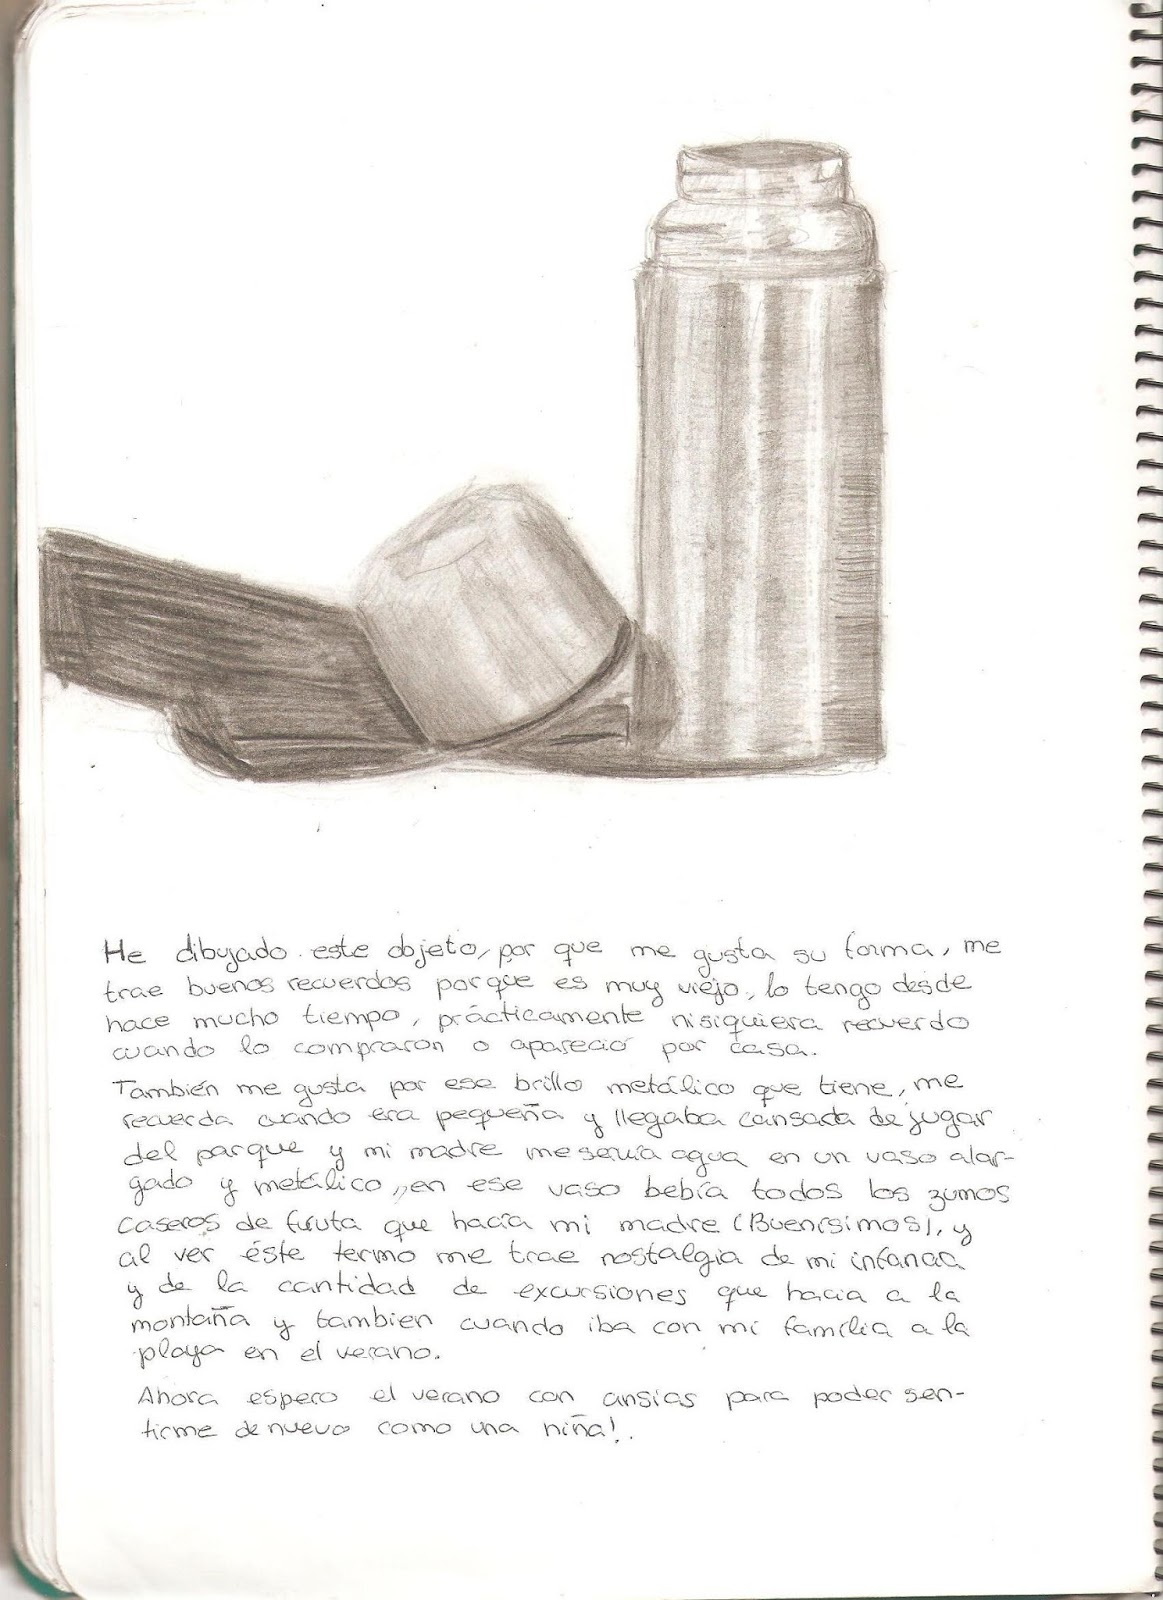 He dibujado este objeto, por que me gusta su forma, me
trae buenos recuerdos porque es muy viejo, lo tengo desde
hace mucho tiempo, prácticamente nisiquiera recuerdo
cuando lo compraron o apareció por casa.
También me gusta por ese brillo metálico que tiene, me
recuerda cuando era pequeña y llegaba cansada de jugar
del parque y mi madre me servía agua en un vaso alar-
gado y metálico, en ese vaso bebía todos los zumos
caseros de fruta que hacía mi madre (Buenísimos), y
al ver éste termo me trae nostalgia de mi infancia
y de la cantidad de excursiones que hacia a la
montaña y tambien cuando iba con mi familia a la
playa en el verano.
Ahora espero el verano con ansias para poder sen-
tirme de nuevo como una niña!.